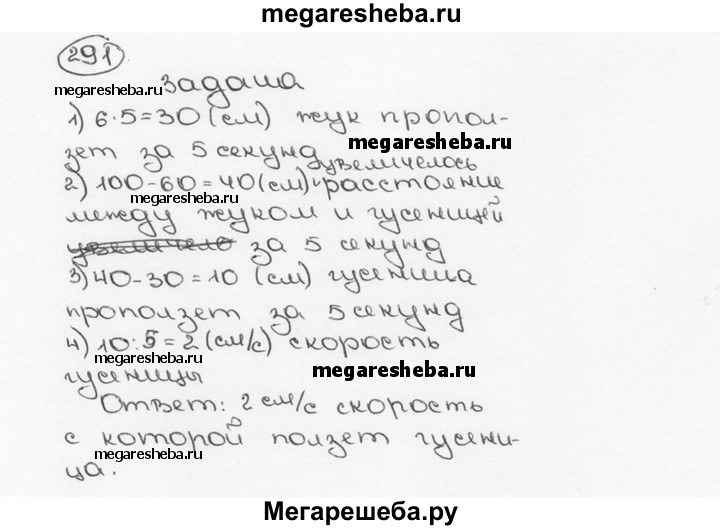 megaresheba.ru
291
megaresheba.ru
Задача
1) 6·5=30 (см) жук пропол-
megaresheba.ru
зет за 5 секунд
увеличелось
2) 100-60=40 (см) расстояние
megaresheba.ru
между жуком и гусеницей
увеличело за 5 секунд
3) 40-30=10 (см) гусеница
проползет за 5 секунд
4) 10:5=2 (см/с) скорость
megaresheba.ru
гусеницы
megaresheba.ru
Ответ: 2 см/с скорость
с которой ползет гусени-
megaresheba.ru
ца.
Мегарешеба.ру